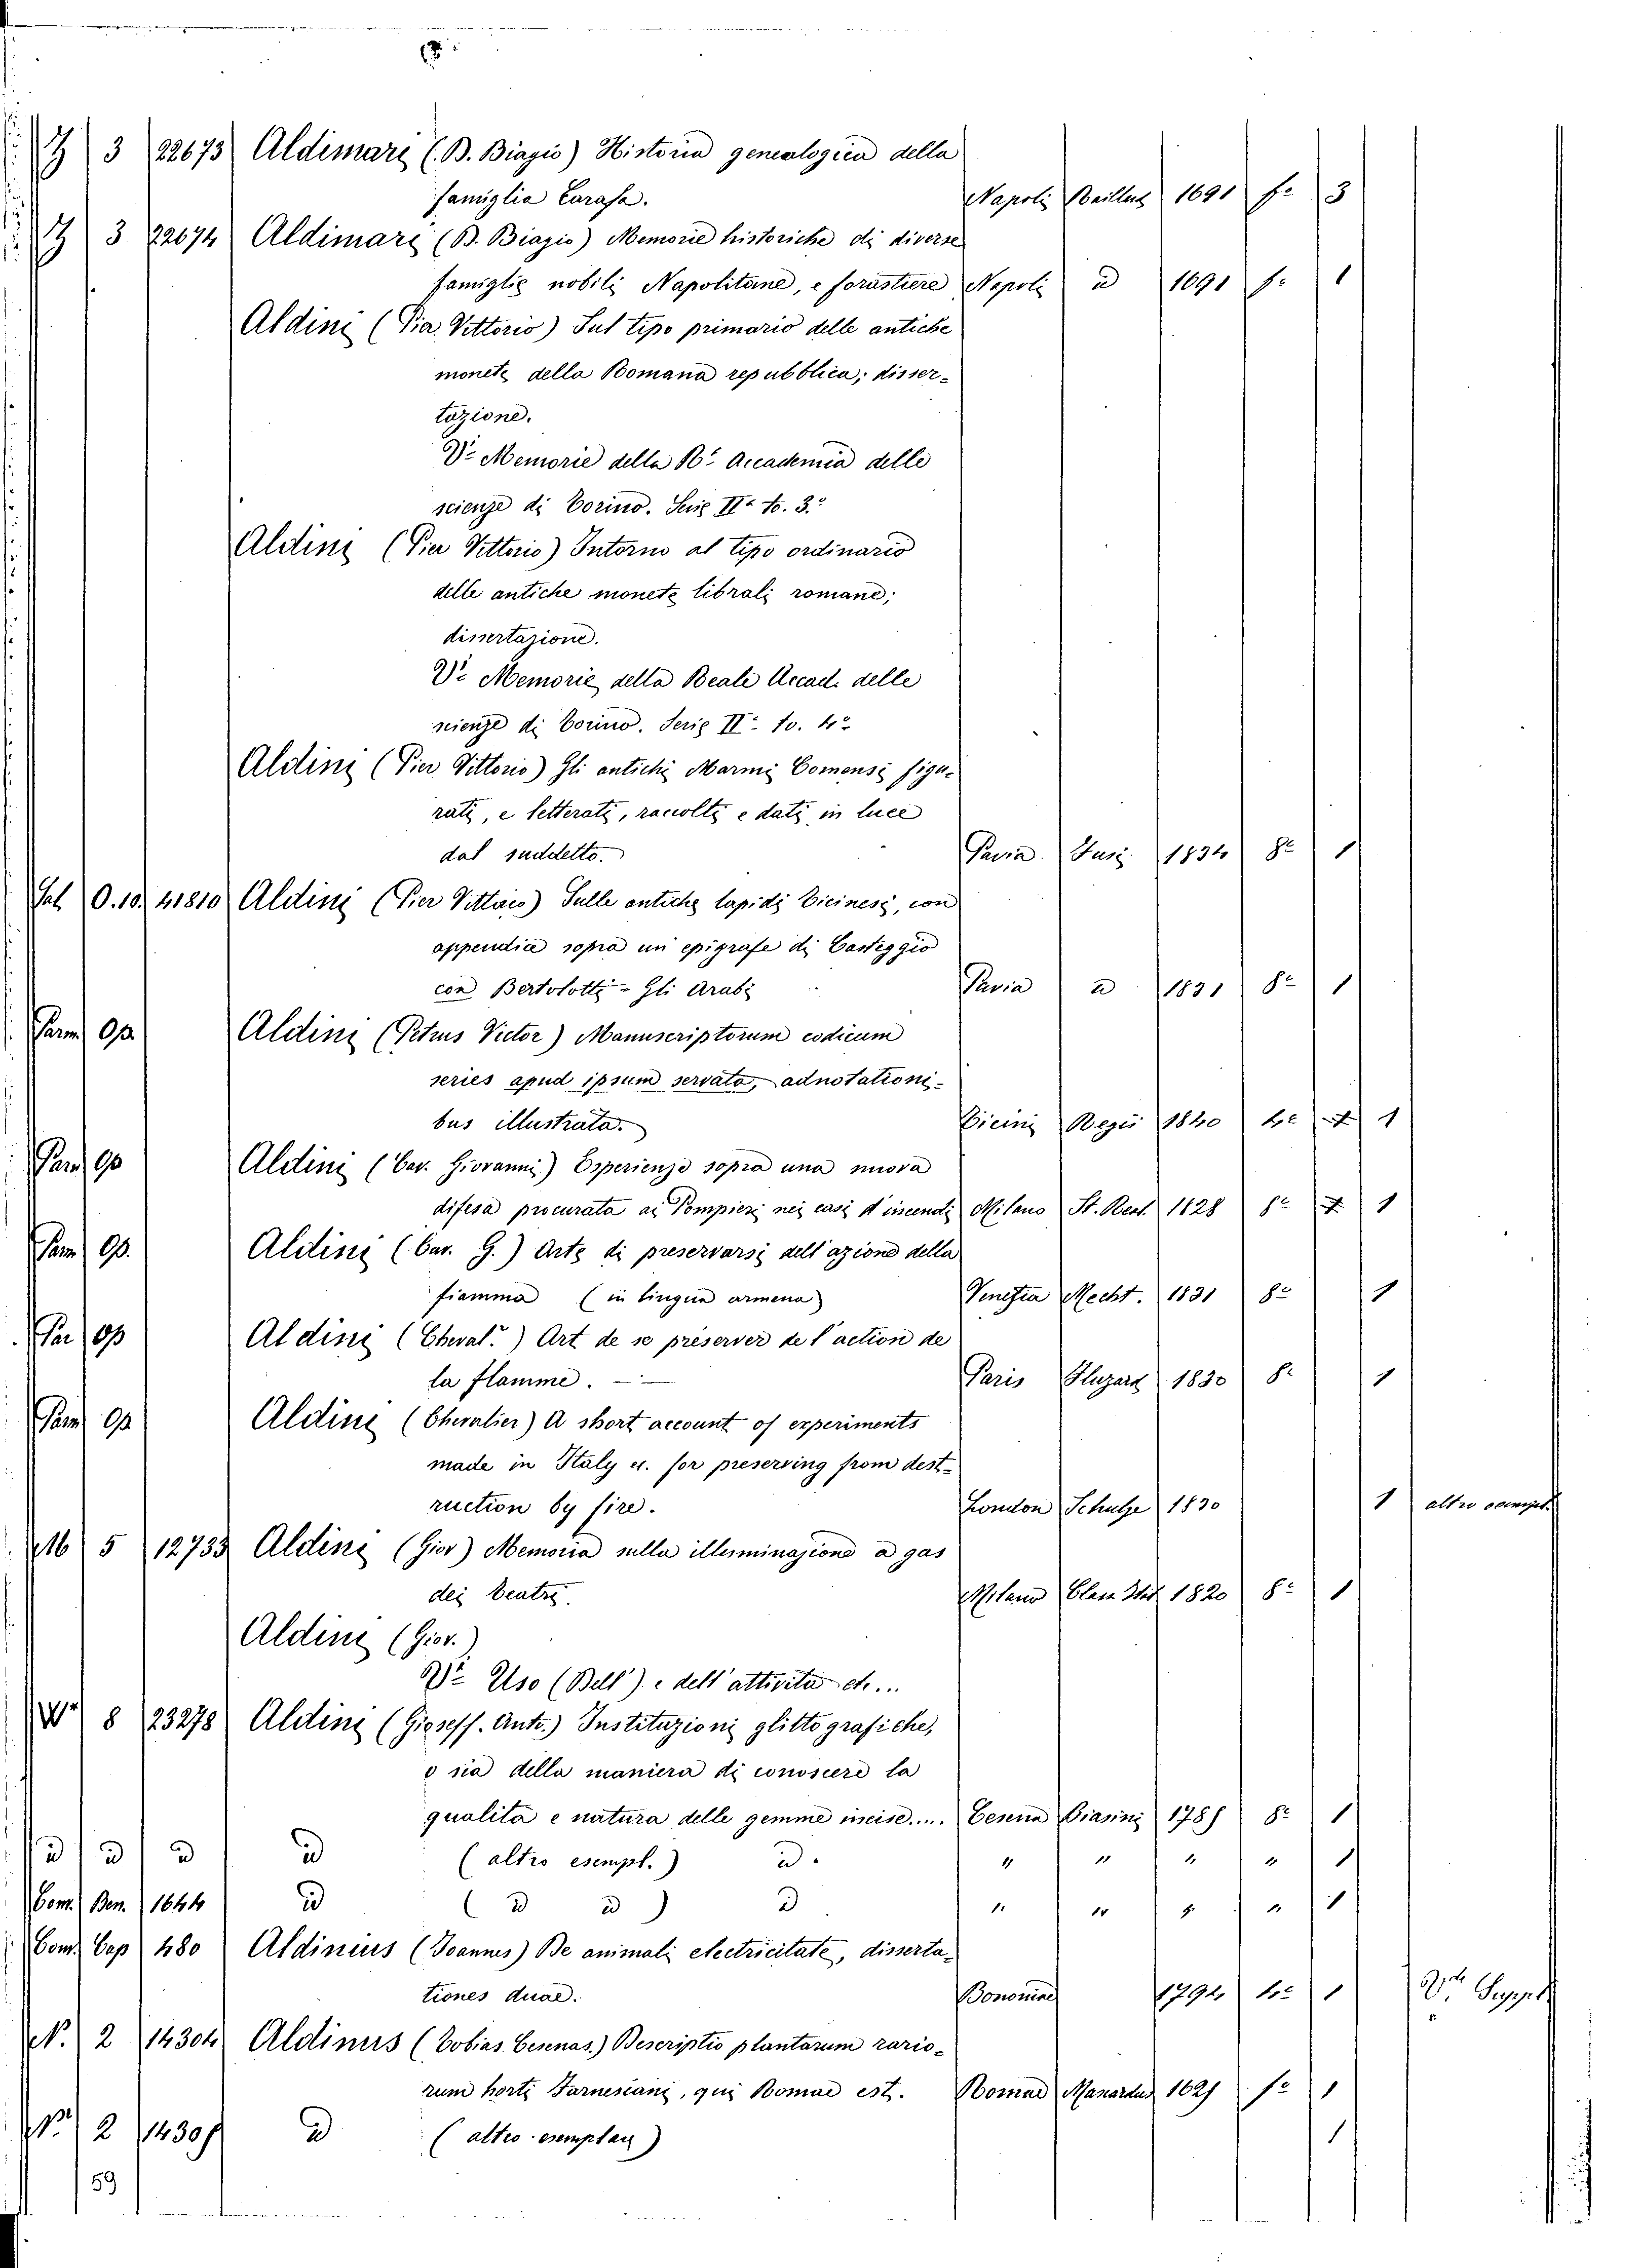 3 22673 Aldimari (B. Biagio) Historia genealogica della
famiglia Carafa. Napoli Raillard 1691 fo 3
3 22674 Aldimari (B. Biagio) Memorie historiche di diverse
famiglie nobili Napolitane, e forastiere Napoli id 1691 fo 1
Aldini (Pier Vittorio) Sul tipo primario delle antiche
monete della Romana repubblica; disser-
tazione.
Vi Memorie della R. Accademia delle
scienze di Torino. Serie IIa to. 3o
Aldini (Pier Vittorio) Intorno al tipo ordinario
delle antiche monete librali romane;
dissertazione.
Vi Memorie della Reale Accad. delle
scienze di Torino. Serie IIa to. 4o
Aldini (Pier Vittorio) Gli antichi Marmi Comensi figu-
rati, e letterati, raccolti e dati in luce
dal suddetto. Pavia Fusi 1834 8o 1
Sal O.10. 41810 Aldini (Pier Vittorio) Sulle antiche lapidi Ticinesi, con
appendice sopra un' epigrafe di Casteggio
con Bertolotti - Gli Arabi Pavia id 1831 8o 1
Parm Op. Aldini (Petrus Victor) Manuscriptorum codicum
series apud ipsum servata, adnotationi-
bus illustrata. Ticini Regii 1840 4o 1
Parm Op Aldini (Cav. Giovanni) Esperienze sopra una nuova
difesa procurata ai Pompieri nei casi d'incendi Milano St. Real. 1828 8o 1
Parm Op. Aldini (Cav. G.) Arte di preservarsi dell'azione della
fiamma (in lingua armena) Venezia Mecht. 1831 8o 1
Par Op Aldini (Cheval.) Art de se préserver de l'action de
la flamme. Paris Huzard 1830 8o 1
Parm Op Aldini (Chevalier) A short account of experiments
made in Italy et. for preserving from dest-
ruction by fire. London Schulze 1830 1 altro esempl.
M 5 12733 Aldini (Giov) Memoria sulla illuminazione a gas
dei teatri. Milano Class Ital 1820 8o 1
Aldini (Giov.)
Vi Uso (Dell') e dell'attività et...
8 23278 Aldini (Gioseff. Ant.) Instituzioni glittografiche,
o sia della maniera di conoscere la
qualità e natura delle gemme incise.... Cesena Biasini 1785 8o 1
id id id id (altro esempl.) id. " " " " 1
Com. Ben. 1644 id (id id) id " " " " 1
Com. Cap 480 Aldinius (Joannes) De animali electricitate, disserta-
tiones duae. Bononiae 1794 4o 1 Vi Suppl
N. 2 14304 Aldinus (Tobias Cesenas.) Descriptio plantarum rario-
rum horti Farnesiani, qui Romae est. Romae Manardus 1625 fo 1
N. 2 14305 id (altro esemplare) 1
59